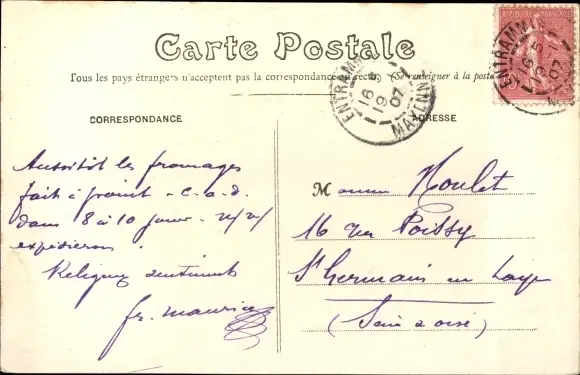 Carte Postale
Tous les pays étrangers n'acceptent pas la correspondance au recto. (Se renseigner à la poste
CORRESPONDANCE
Aussitôt les fromages
fait à point - c.a.d.
dans 8 à 10 jours -
expédierons.
Religieux sentiments
fr. Maurice
ENTRAMM
16 5
19 07
MAYENN
ADRESSE
Monsieur Houlet
16 rue Poissy
St Germain en Laye
(Seine & oise)
REPUBLIQUE FRANÇAISE
ENTRAMM
16 5
07